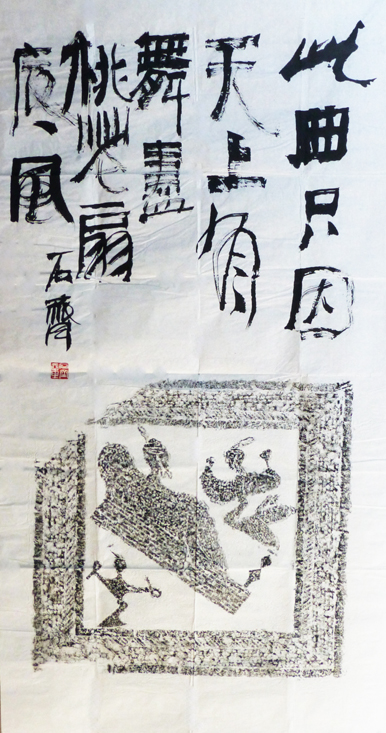 此曲只因
天上有
舞盡
桃花扇
底風
石齊